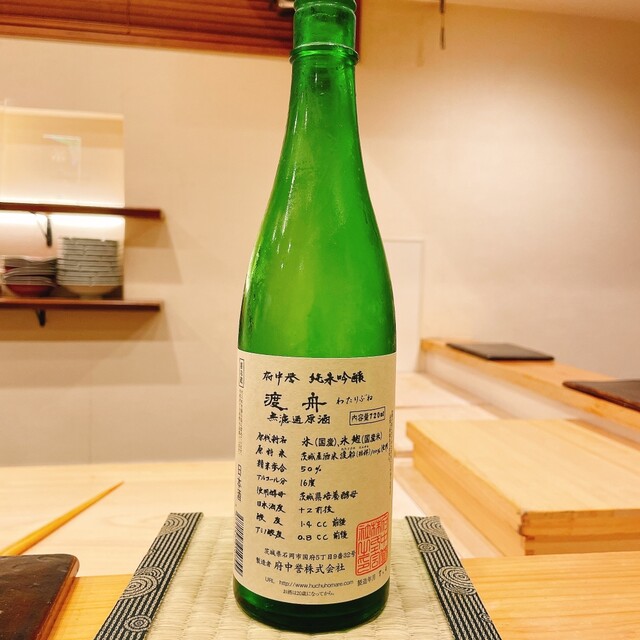 府中誉 純米吟醸
渡舟 わたりぶね
無濾過原酒 内容量720ml
原材料名 米(国産)、米麹(国産米)
原料米 茨城産酒米渡船
精米歩合 50%
アルコール分 16度
使用酵母 茨城県培養酵母
日本酒度 +2前後
酸度 1.4CC前後
アミノ酸度 0.8CC前後
茨城県石岡市国府5丁目9番32号
製造者 府中誉株式会社
URL http://www.huchuhomare.com
お酒は20歳になってから。
製造年月
日本酒